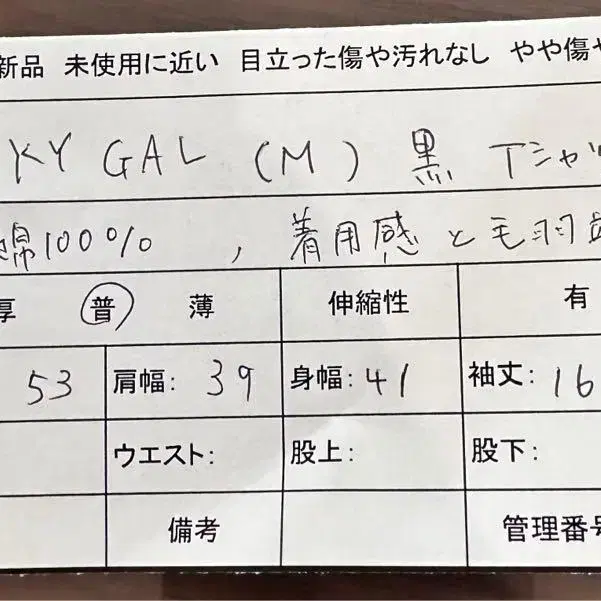 新品 未使用に近い 目立った傷や汚れなし やや傷や
KY GAL (M) 黒 Tシャツ
綿100% , 着用感と毛羽
厚 普 薄 伸縮性 有
53 肩幅: 39 身幅: 41 袖丈: 16
ウエスト: 股上: 股下:
備考 管理番号